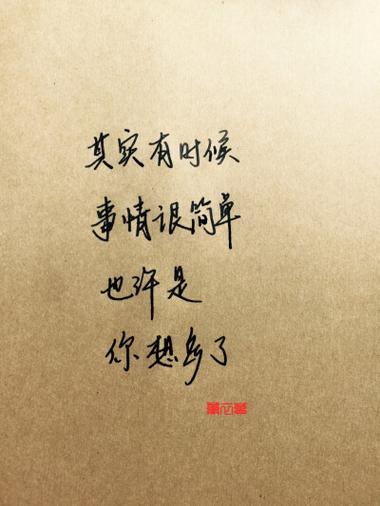 其实有时候
事情很简单
也许是
你想多了